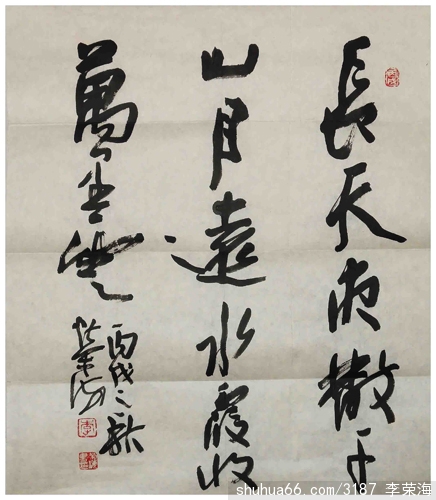 長天夜散千
山月遠水霞收
萬里雲
丙戌之秋
榮海
shuhua66.com/3187 李荣海